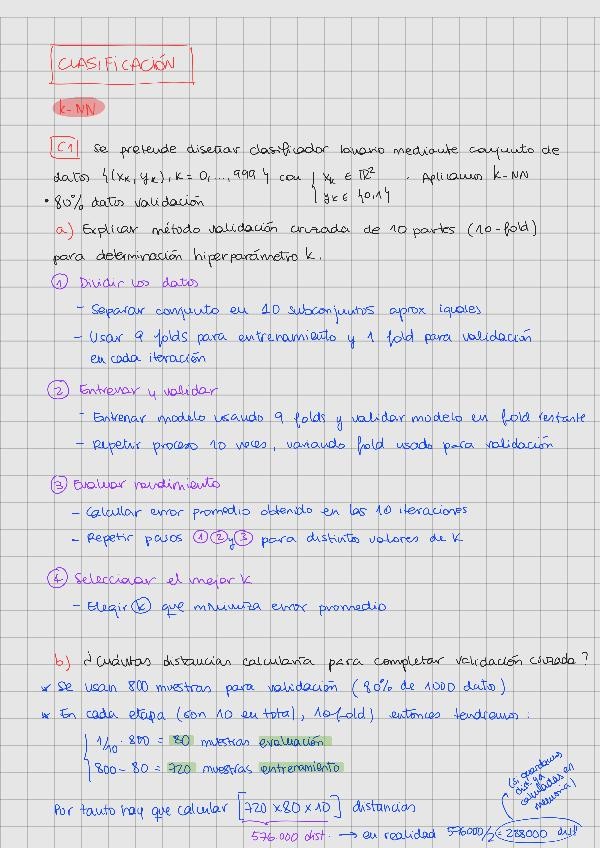 CLASIFICACIÓN
k-NN
C1 Se pretende diseñar clasificador binario mediante conjunto de
datos {(xk, yk), k = 0, ..., 999} con { xk ∈ R² . Aplicamos k-NN
yk ∈ {0,1}
• 80% datos validación
a) Explicar método validación cruzada de 10 partes (10-fold)
para determinación hiperparámetro k.
① Dividir los datos
- Separar conjunto en 10 subconjuntos aprox iguales
- Usar 9 folds para entrenamiento y 1 fold para validación
en cada iteración
② Entrenar y validar
- Entrenar modelo usando 9 folds y validar modelo en fold restante
- Repetir proceso 10 veces, variando fold usado para validación
③ Evaluar rendimiento
- Calcular error promedio obtenido en las 10 iteraciones
- Repetir pasos ① ② y ③ para distintos valores de k
④ Seleccionar el mejor k
- Elegir k que minimiza error promedio
b) ¿Cuántas distancias calcularía para completar validación cruzada?
* Se usan 800 muestras para validación (80% de 1000 datos)
* En cada etapa (son 10 en total, 10 fold) entonces tendremos:
{ 1/10 · 800 = 80 muestras evaluación
800 - 80 = 720 muestras entrenamiento
Por tanto hay que calcular [720 x 80 x 10] distancias
576.000 dist. → en realidad 576000/2 = 288000 dist!!
(si guardamos
dist. ya
calculadas en
memoria)